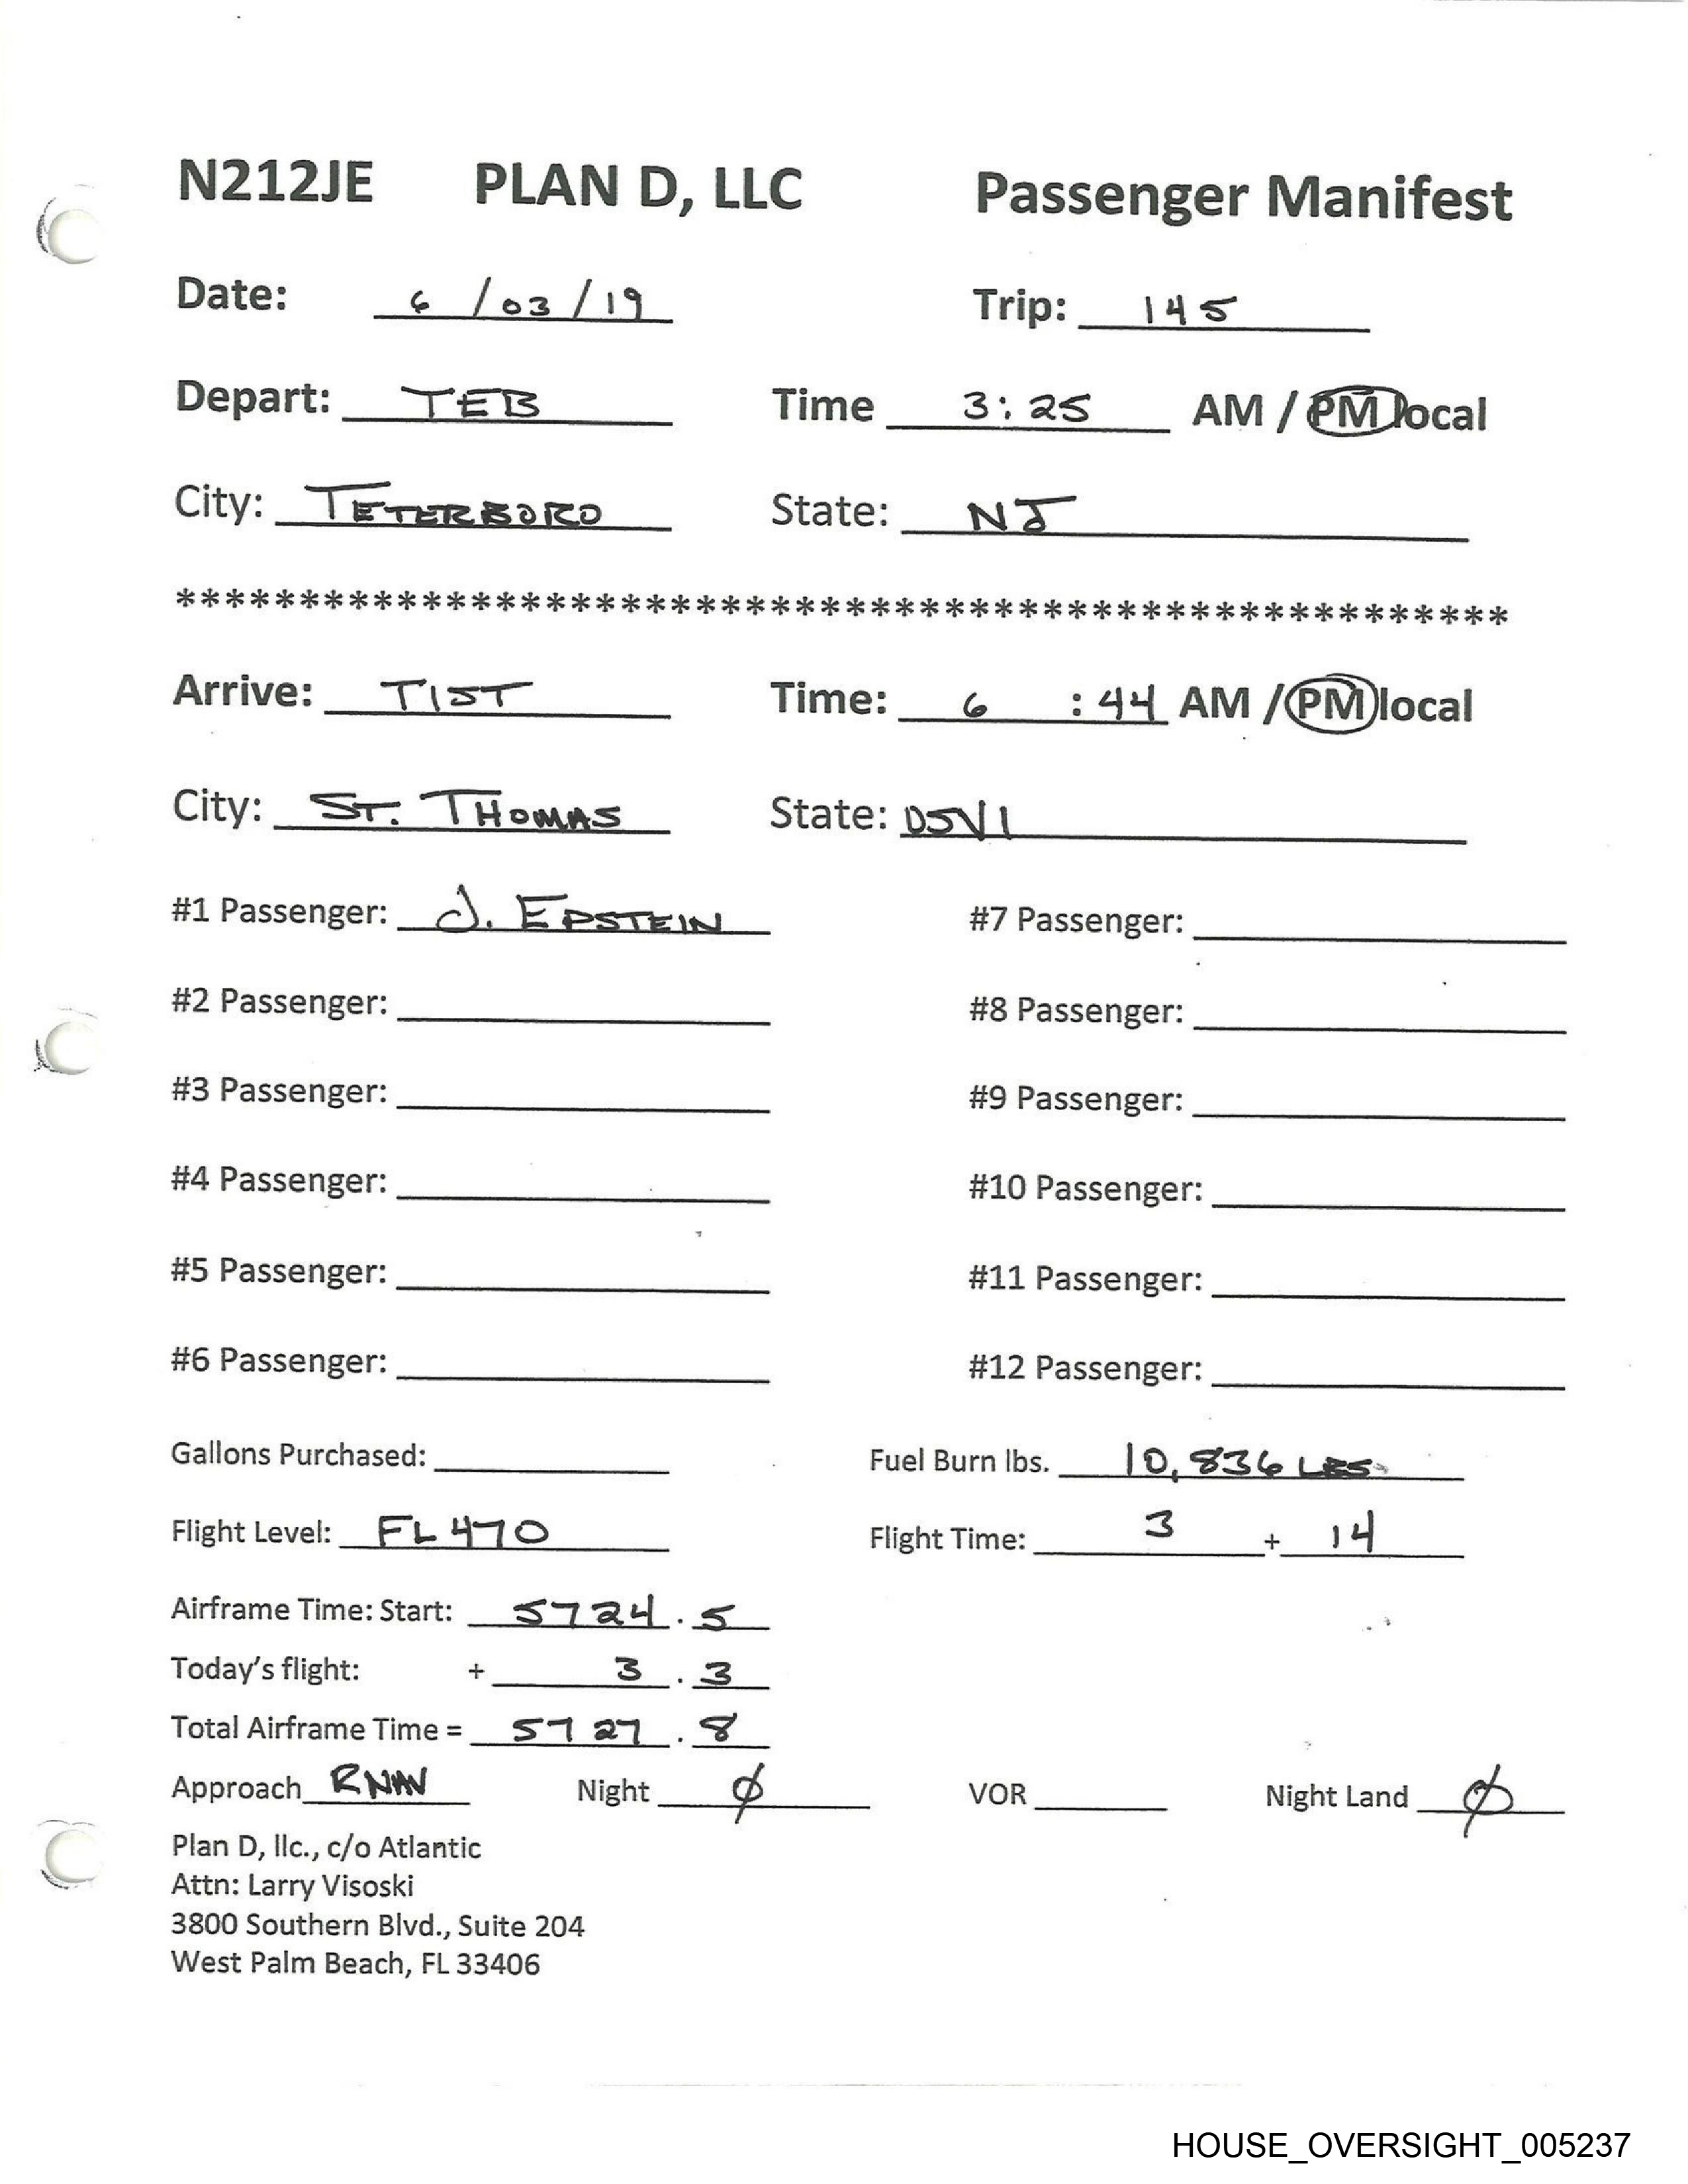 N212JE PLAN D, LLC Passenger Manifest
Date: 6 / 03 / 19 Trip: 145
Depart: TEB Time 3:25 AM / PM local
City: TETERBORO State: NJ
******************************************************
Arrive: TIST Time: 6 :44 AM / PM local
City: ST. THOMAS State: USVI
#1 Passenger: J. EPSTEIN #7 Passenger:
#2 Passenger: #8 Passenger:
#3 Passenger: #9 Passenger:
#4 Passenger: #10 Passenger:
#5 Passenger: #11 Passenger:
#6 Passenger: #12 Passenger:
Gallons Purchased: Fuel Burn lbs. 10,836 LBS
Flight Level: FL470 Flight Time: 3 + 14
Airframe Time: Start: 5724 . 5
Today's flight: + 3 . 3
Total Airframe Time = 5727 . 8
Approach Night Ø VOR Night Land Ø
Plan D, llc., c/o Atlantic
Attn: Larry Visoski
3800 Southern Blvd., Suite 204
West Palm Beach, FL 33406
HOUSE_OVERSIGHT_005237